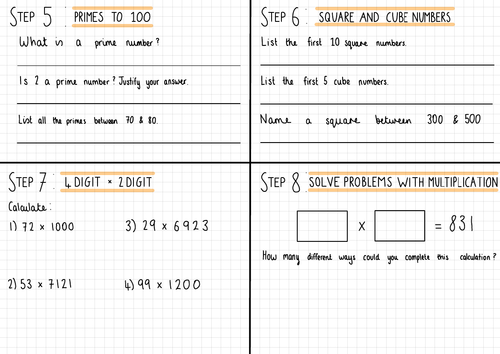 STEP 5 : PRIMES TO 100
What is a prime number?
Is 2 a prime number? Justify your answer.
List all the primes between 70 & 80.
STEP 6 : SQUARE AND CUBE NUMBERS
List the first 10 square numbers.
List the first 5 cube numbers.
Name a square between 300 & 500
STEP 7 : 4 DIGIT × 2 DIGIT
Calculate:
1) 72 × 1000
3) 29 × 6923
2) 53 × 7121
4) 99 × 1200
STEP 8 : SOLVE PROBLEMS WITH MULTIPLICATION
× = 831
How many different ways could you complete this calculation?